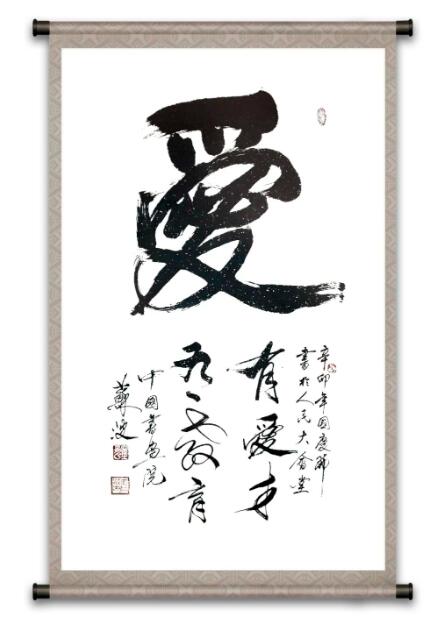 愛
辛卯年国慶節
書於人民大會堂
有愛才
教育
中國書畫院
蘇